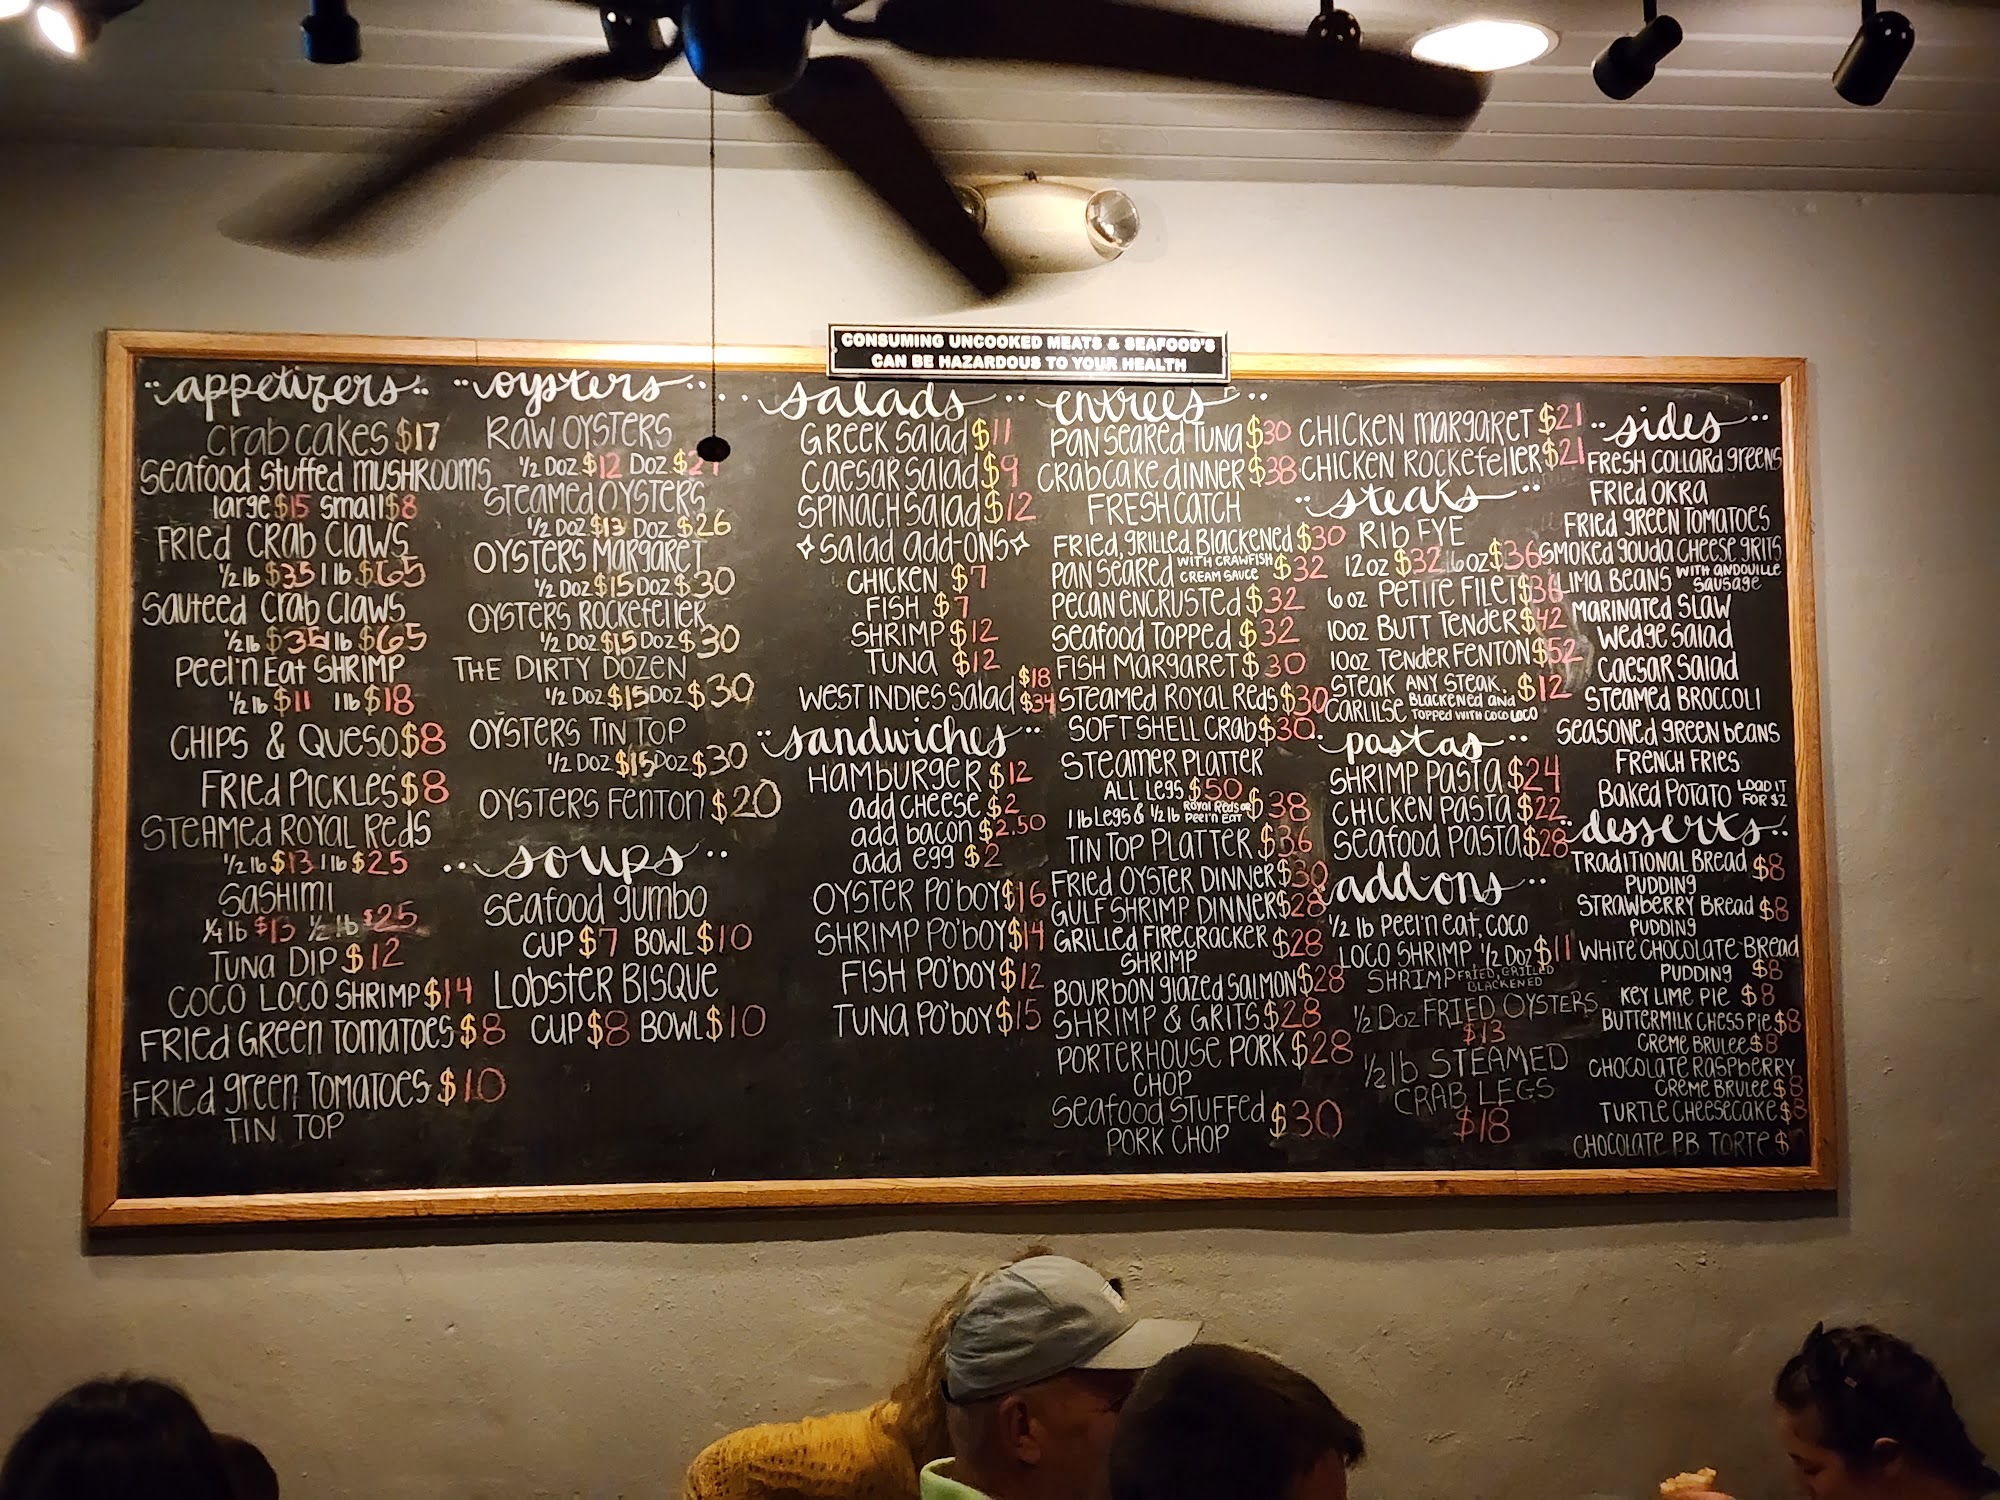 CONSUMING UNCOOKED MEATS & SEAFOOD'S
CAN BE HAZARDOUS TO YOUR HEALTH
appetizers
Crab Cakes $17
Seafood Stuffed Mushrooms
large $15 small $8
Fried Crab Claws
1/2 lb $35 1 lb $65
Sauteed Crab Claws
1/2 lb $35 1 lb $65
Peel'n Eat Shrimp
1/2 lb $11 1 lb $18
Chips & Queso $8
Fried Pickles $8
Steamed Royal Reds
1/2 lb $13 1 lb $25
Sashimi
1/4 lb $13 1/2 lb $25
Tuna Dip $12
Coco Loco Shrimp $14
Fried Green Tomatoes $8
Fried Green Tomatoes $10
Tin Top
oysters
Raw Oysters
1/2 Doz $12 Doz
Steamed Oysters
1/2 Doz $13 Doz $26
Oysters Margaret
1/2 Doz $15 Doz $30
Oysters Rockefeller
1/2 Doz $15 Doz $30
The Dirty Dozen
1/2 Doz $15 Doz $30
Oysters Tin Top
1/2 Doz $15 Doz $30
Oysters Fenton $20
soups
Seafood Gumbo
Cup $7 Bowl $10
Lobster Bisque
Cup $8 Bowl $10
salads
Greek Salad $11
Caesar Salad $9
Spinach Salad $12
Salad Add-Ons
Chicken $7
Fish $7
Shrimp $12
Tuna $12
$18
West Indies Salad $34
sandwiches
Hamburger $12
add cheese $2
add bacon $2.50
add egg $2
Oyster Po'boy $16
Shrimp Po'boy $14
Fish Po'boy $12
Tuna Po'boy $15
entrees
Pan Seared Tuna $30
Crabcake Dinner $38
Fresh Catch
Fried, Grilled, Blackened $30
Pan Seared with Crawfish Cream Sauce $32
Pecan Encrusted $32
Seafood Topped $32
Fish Margaret $30
Steamed Royal Reds $30
Soft Shell Crab $30
Steamer Platter
All Legs $50
1 lb Legs & 1/2 lb Royal Reds or Peel'n Eat $38
Tin Top Platter $36
Fried Oyster Dinner $30
Gulf Shrimp Dinner $28
Grilled Firecracker $28
Shrimp
Bourbon Glazed Salmon $28
Shrimp & Grits $28
Porterhouse Pork $28
Chop
Seafood Stuffed $30
Pork Chop
Chicken Margaret $21
Chicken Rockefeller $21
steaks
Rib Fye
12oz $32 16oz $36
6 oz Petite Filet
10oz Butt Tender $42
10oz Tender Fenton $52
Steak Any Steak, $12
Carlilse Blackened and
Topped with Coco Loco
pastas
Shrimp Pasta $24
Chicken Pasta $22
Seafood Pasta $28
add-ons
1/2 lb Peel'n Eat, Coco
Loco Shrimp, 1/2 Doz $11
Shrimp Fried, Grilled
Blackened
1/2 Doz Fried Oysters
$13
1/2 lb Steamed
Crab Legs
$18
sides
Fresh Collard Greens
Fried Okra
Fried Green Tomatoes
Smoked Gouda Cheese Grits
Lima Beans with Andouille
Sausage
Marinated Slaw
Wedge Salad
Caesar Salad
Steamed Broccoli
Seasoned Green Beans
French Fries
Baked Potato Load it
for $2
desserts
Traditional Bread $8
Pudding
Strawberry Bread $8
Pudding
White Chocolate Bread
Pudding $8
Key Lime Pie $8
Buttermilk Chess Pie $8
Creme Brulee $8
Chocolate Raspberry
Creme Brulee $8
Turtle Cheesecake $8
Chocolate P.B Torte $